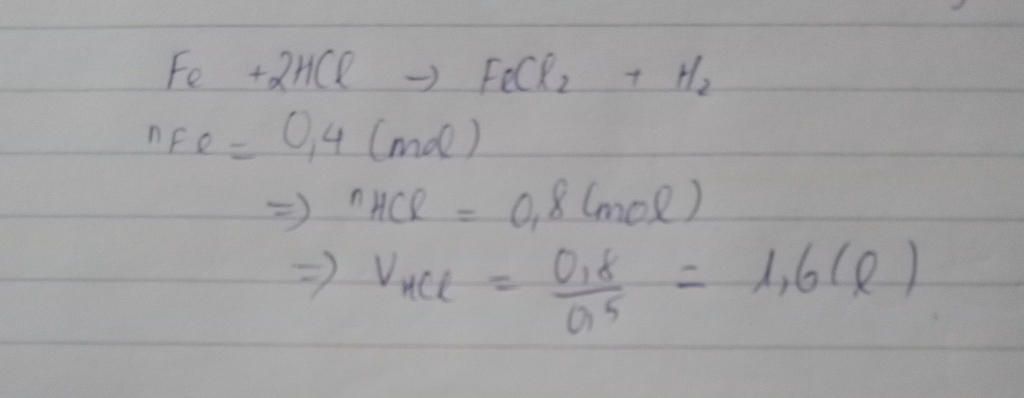 Fe + 2HCl → FeCl₂ + H₂
nFe = 0,4 (mol)
=> nHCl = 0,8 (mol)
=> VHCl = 0,8/0,5 = 1,6 (l)